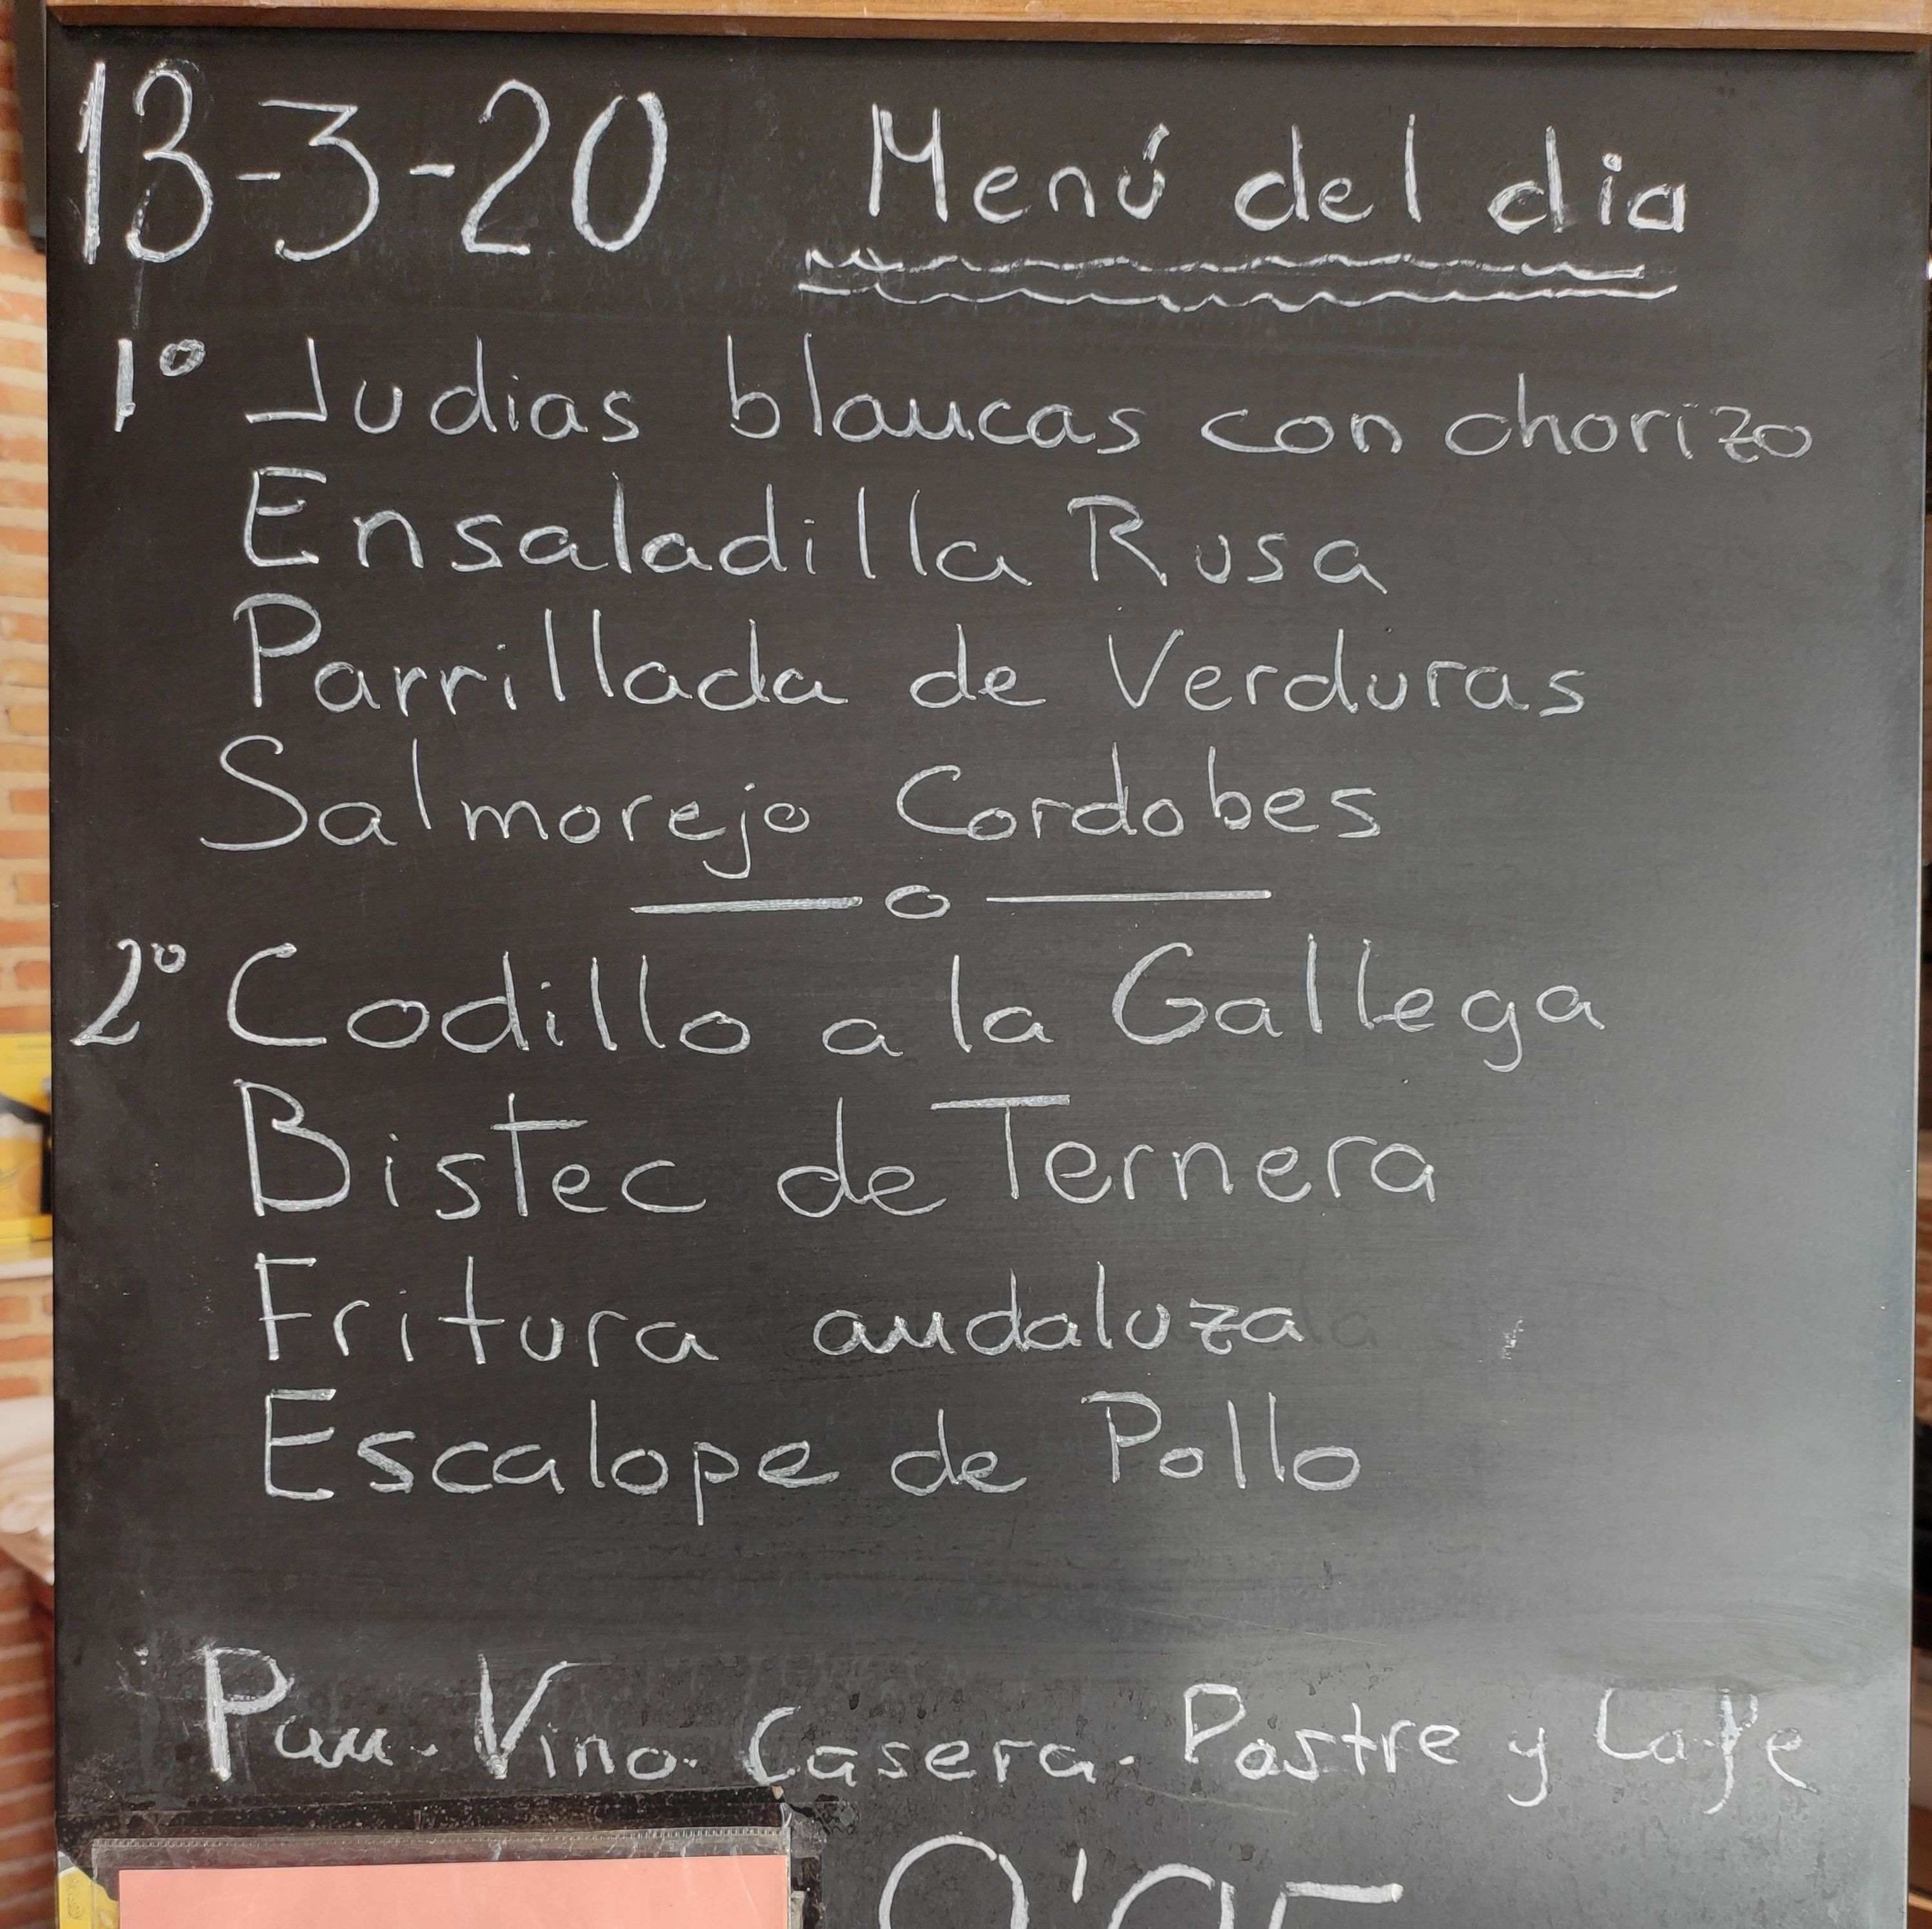 13-3-20 Menú del dia
1º Judias blancas con chorizo
Ensaladilla Rusa
Parrillada de Verduras
Salmorejo Cordobes
— o —
2º Codillo a la Gallega
Bistec de Ternera
Fritura andaluza
Escalope de Pollo
Pan. Vino. Casera. Postre y Cafe